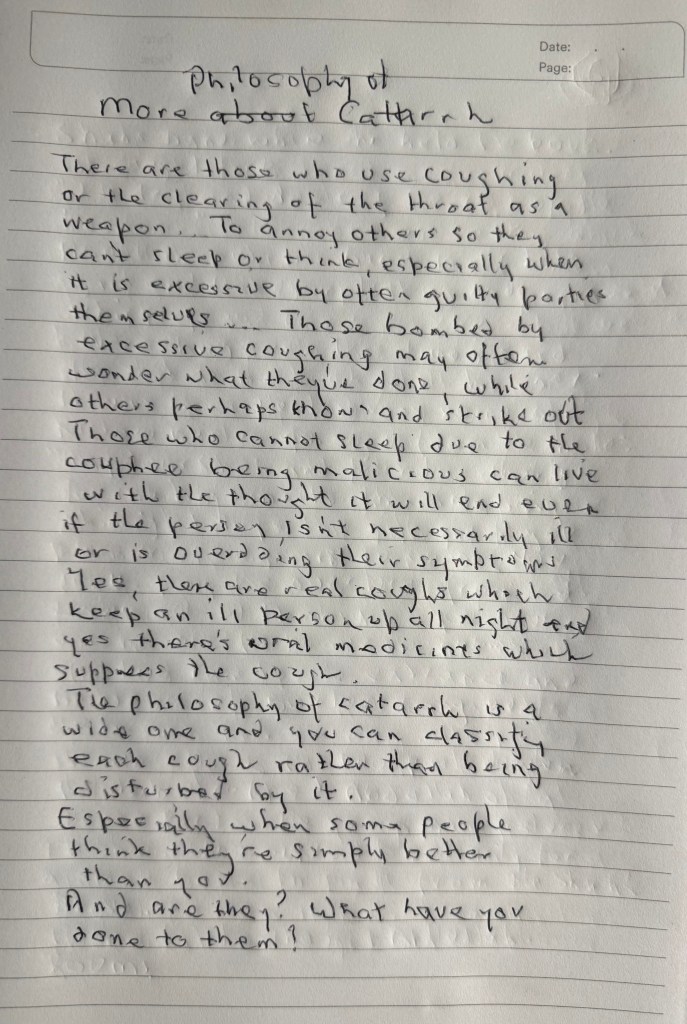 Date:
Page:
Philosophy of
More about Catarrh
There are those who use coughing
or the clearing of the throat as a
weapon... To annoy others so they
can't sleep or think, especially when
it is excessive by often guilty parties
themselves .... Those bombed by
excessive coughing may often
wonder what they've done, while
others perhaps know and strike out
Those who cannot sleep due to the
couphee being malicious can live
with the thought it will end even
if the person isn't necessarily ill
or is overdoing their symptoms
Yes, there are real coughs which
keep an ill person up all night and
yes there's oral medicines which
suppress the cough.
The philosophy of catarrh is a
wide one and you can classify
each cough rather than being
disturbed by it.
Especially when some people
think they're simply better
than you.
And are they? What have you
done to them?